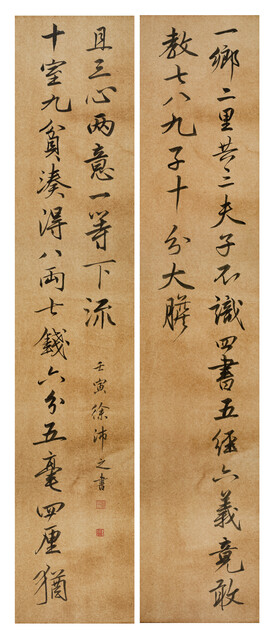 一鄉二里共三夫子不識四書五經六義竟敢
教七八九子十分大膽
十室九貧湊得八兩七錢六分五毫四厘猶
且三心兩意一等下流
壬寅徐沛之書